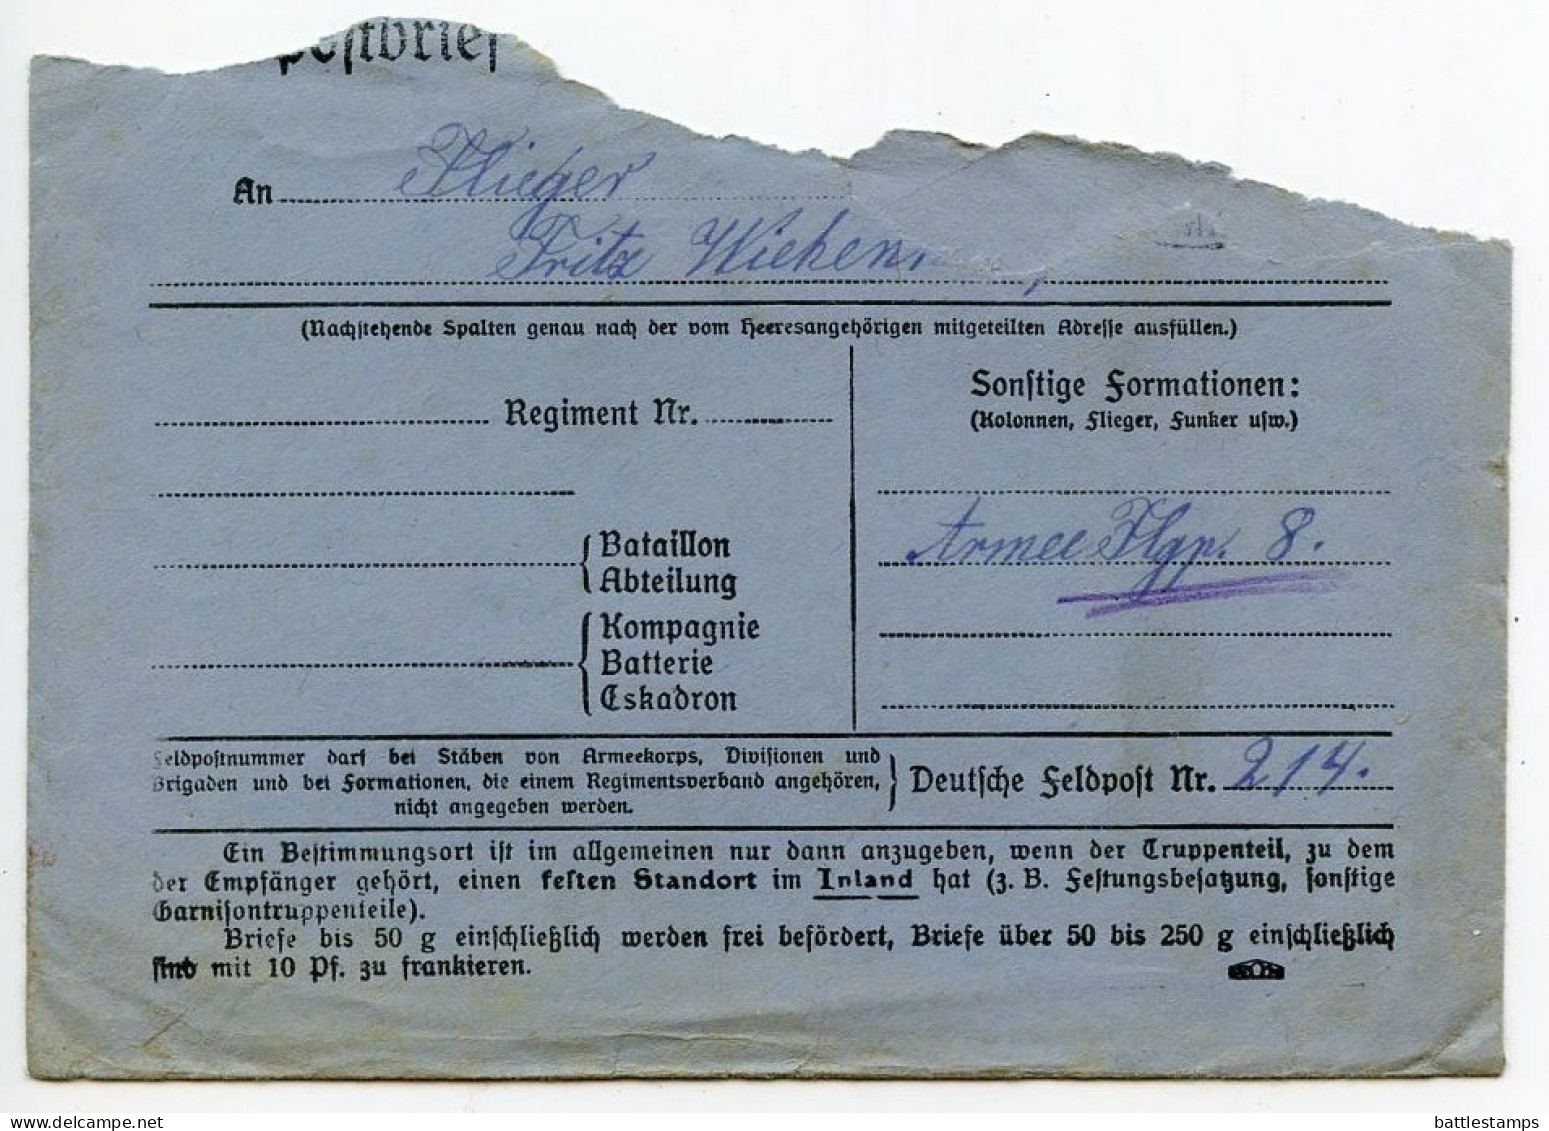 An Flieger
Fritz
(Nachstehende Spalten genau nach der vom Heeresangehörigen mitgeteilten Adresse ausfüllen.)
Regiment Nr.
Bataillon
Abteilung
Kompagnie
Batterie
Eskadron
Sonstige Formationen:
(Kolonnen, Flieger, Funker usw.)
Armee Flgp. 8.
Feldpostnummer darf bei Stäben von Armeekorps, Divisionen und
Brigaden und bei Formationen, die einem Regimentsverband angehören,
nicht angegeben werden.
Deutsche Feldpost Nr. 214.
Ein Bestimmungsort ist im allgemeinen nur dann anzugeben, wenn der Truppenteil, zu dem
der Empfänger gehört, einen festen Standort im Inland hat (z. B. Festungsbesatzung, sonstige
Garnisontruppenteile).
Briefe bis 50 g einschließlich werden frei befördert, Briefe über 50 bis 250 g einschließlich
sind mit 10 Pf. zu frankieren.
www.delcampe.net
battlestamps